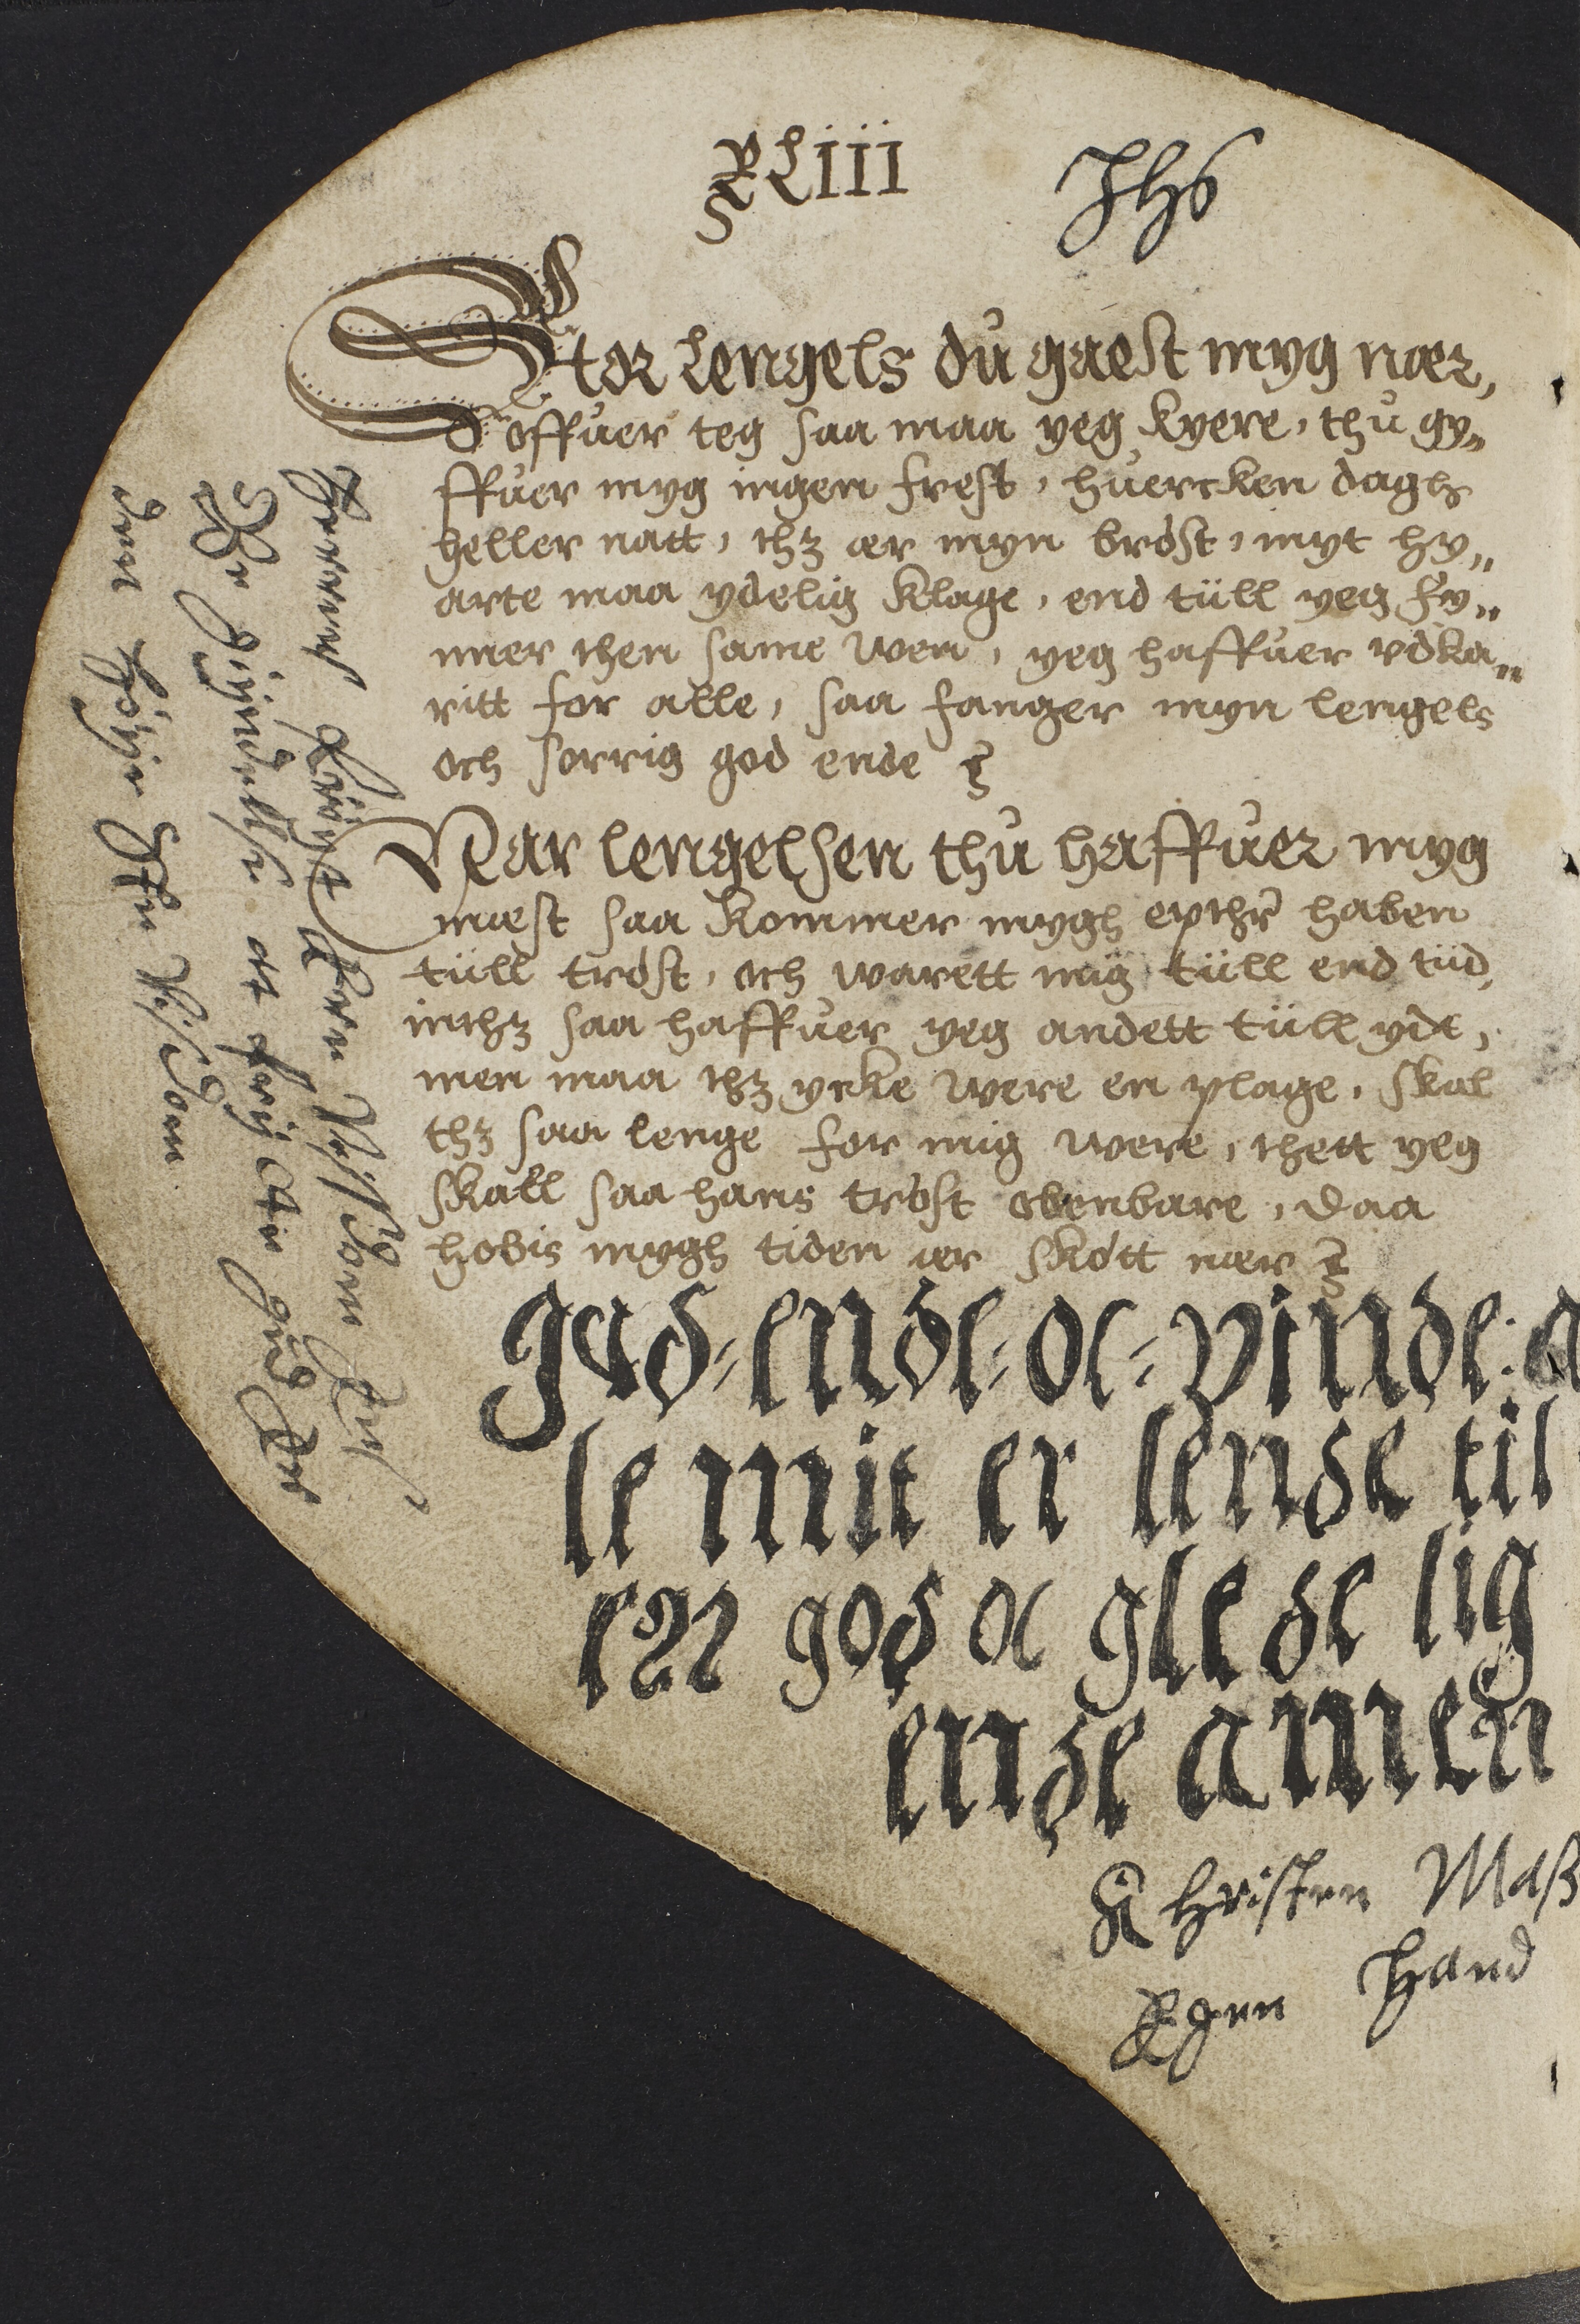 XLiii
Jhs
Stor lengels du gaest myg nær,
offuer teg saa maa yeg kyere, thu gy„
ffuer myg ingen frest, huercken dagh
heller natt, thz ær myn brøst, myt hy„
arte maa ydelig klage, end tüll yeg fy„
nner then same wen, yeg haffuer vdka„
ritt for alle, saa fanger myn lengels
och sorrig god ende
Naar lengelsen thu haffuer myg
mæst saa kommer mygh epther haben
tüll trøst, och warett mig tüll end tüd,
inthz saa haffuer yeg andett tüll ydt,
men maa thz ycke were en plage, skal
thz saa lenge for mig were, thett yeg
skall saa hans trøst obenbare, daa
hobis mygh tiden ær skøtt nær
gud= ende= oc= vinde: a
le mit er lende til
en god oc gle de lig
ende amen
Christen Maß
Egen Hand
Herrens fröyt Er Wissdom
Begÿndelse at
den følge Wisdom